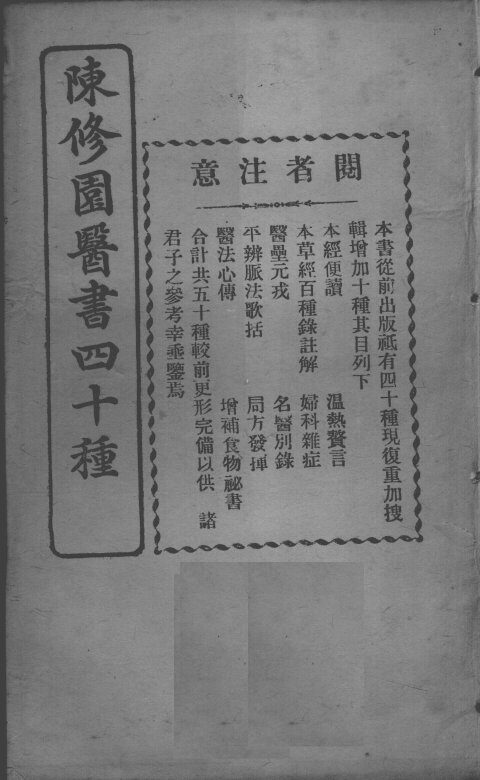 陳修園醫書四十種
閱者注意
本書從前出版祗有四十種現復重加搜
輯增加十種其目列下
本經便讀　　温熱贅言
本草經百種錄註解　　婦科雜症
醫壘元戎　　名醫別錄
平辨脈法歌括　　局方發揮
醫法心傳　　增補食物祕書
合計共五十種較前更形完備以供　諸
君子之參考幸垂鑒焉